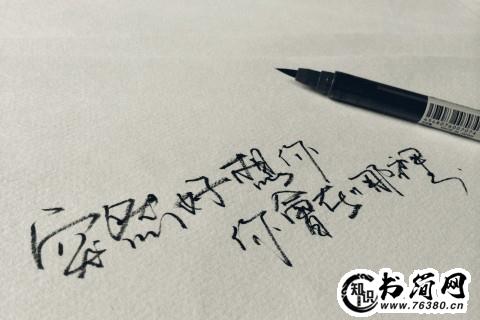 突然好想你
你會在那裡
知识
书简网
www.76380.cn